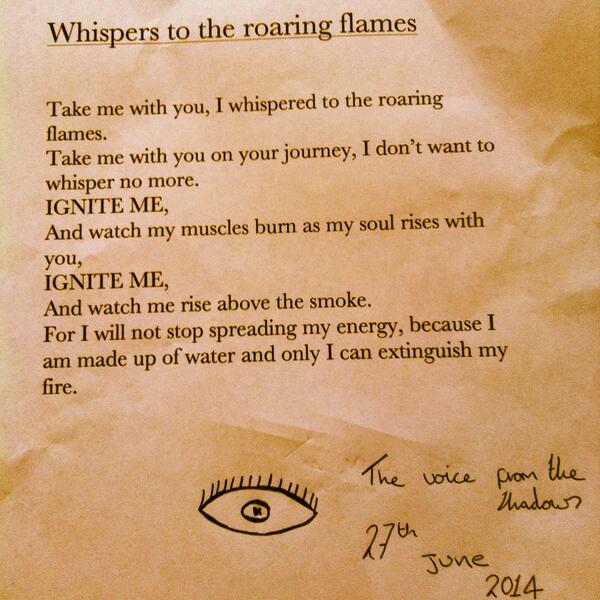 Whispers to the roaring flames
Take me with you, I whispered to the roaring
flames.
Take me with you on your journey, I don't want to
whisper no more.
IGNITE ME,
And watch my muscles burn as my soul rises with
you,
IGNITE ME,
And watch me rise above the smoke.
For I will not stop spreading my energy, because I
am made up of water and only I can extinguish my
fire.
The voice from the
shadows
27th
June
2014